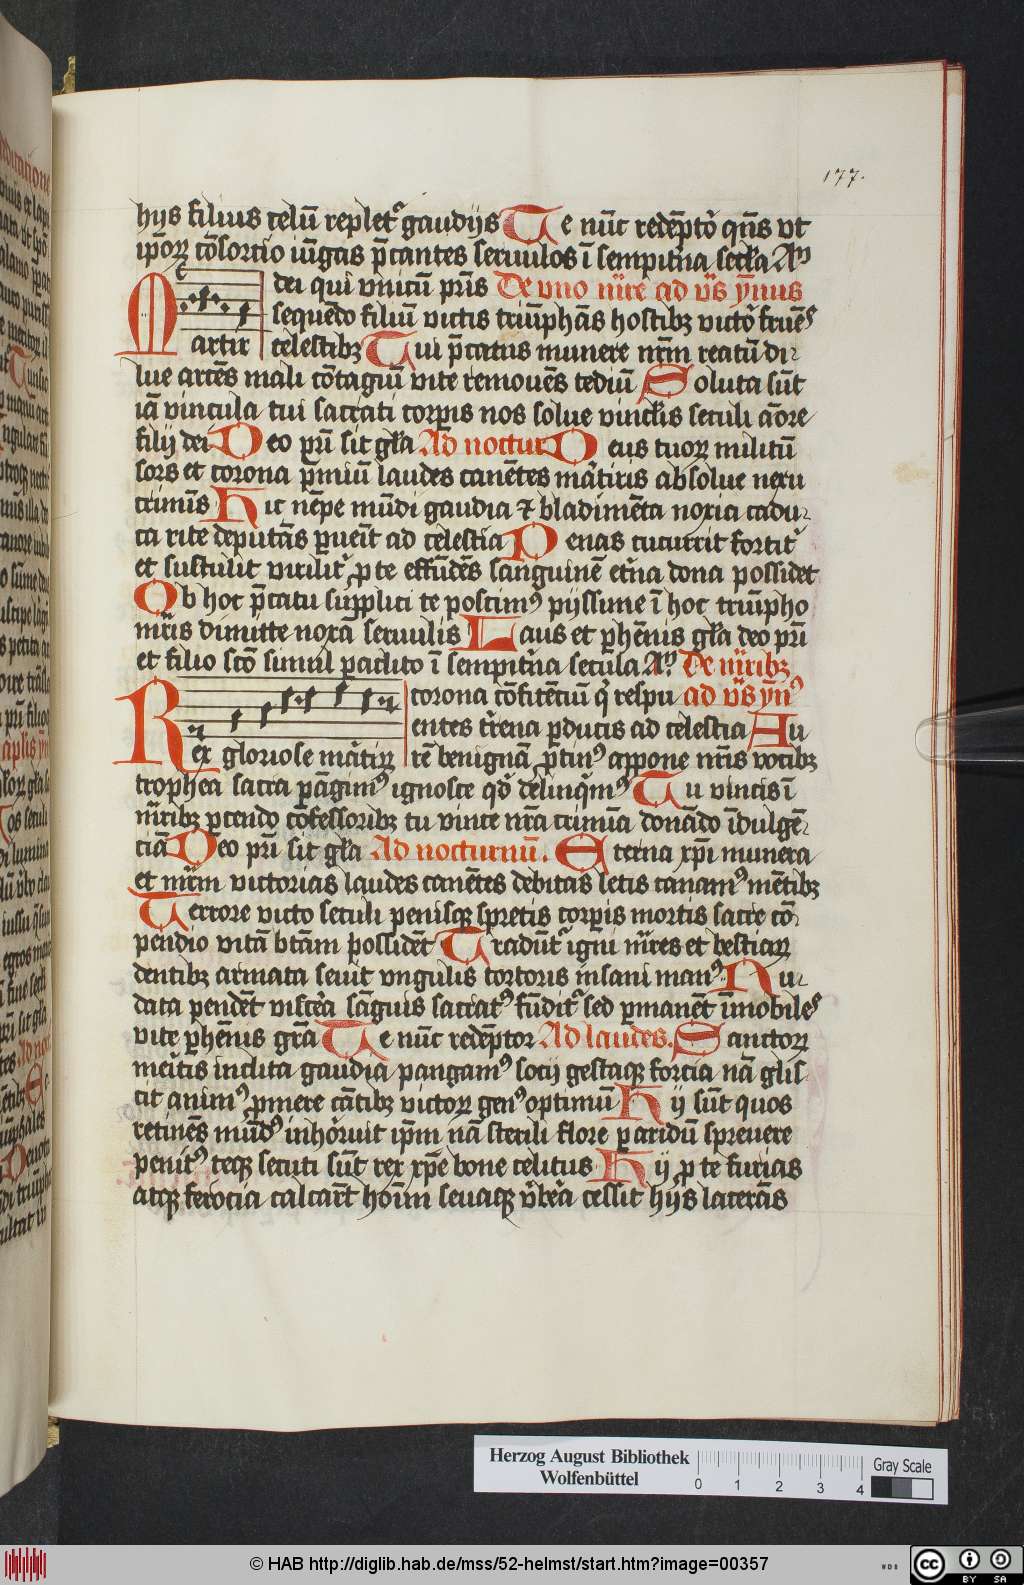 177.
hijs filius celū repletʳ gaudijs Te nūc redēptor̉ qn̄s vt
ip̄oꝝ cōsortio iūgas p̄cantes seruulos ī sempit̉na sec̄la Am̄
dei qui vnicū pr̄is De vno mr̄e ad vs̄ ymnus
sequēdo filiū victis triūphās hostibꝫ victor̉ fruēs
Martir celestibꝫ Tui p̄catus munere nr̄m reatū di-
lue arcēs mali cōtagiū vite remouēs tediū Soluta sūt
iā vincula tui sacrati corpis nos solue vinclis seculi amore
filij dei Deo pr̄i sit gl̄a Ad noctur Deus tuoꝝ militū
sors et corona p̄miū laudes canētes mar̄tiris absolue nexu
criminis Hic nēpe mūdi gaudia ⁊ bladimēta noxia cadu-
ca rite deputās ꝑueit ad celestia Penas cucurrit fortitʳ
et sustulit virilitʳ ꝓ te effūdēs sanguinē et̉na dona possidet
Ob hoc p̄catu supplici te poscimꝰ pijssime ī hoc triūpho
mr̄is dimitte noxā seruulis Laus et ꝑhēnis gl̄a deo pr̄i
et filio sc̄o simul paclito ī sempit̉na secula Am̄ De mr̄ibꝫ
corona cōfitēciū qͥ respu ad vs̄ ymꝰ
entes t̉rena ꝑducis ad celestia Au
Rex gloriose mar̄tiꝝ rē benignā ꝓtinꝰ appone nr̄is vocibꝫ
trophea sacra pāgimꝰ ignosce qͦd deliqͥmꝰ Tu vincis ī
mr̄ibꝫ ꝑcendo cōfessoribꝫ tu vince nr̄a crimīa donādo īdulgē-
ciā Deo pr̄i sit gl̄a Ad nocturnū. Eterna xp̄i munera
et mr̄m victorias laudes canētes debitas letis canamꝰ mētibꝫ
Terrore victo seculi penisqꝫ spretis corpis mortis sacre cō-
pendio vitā btā̄m possidēt Tradūtʳ igni mr̄es et bestiaꝝ
dentibꝫ armata seuit vngulis tortoris insani manꝰ Nu-
data pendēt viscēa sāguis sacratꝰ fūditʳ sed ꝑmanēt īmobiles
vite ꝑhēnis grā Te nūc redēptor Ad laudes. Sanctoꝝ
meritis inclita gaudia pangamꝰ socij gestaqꝫ forcia nā glis-
cit animꝰ ꝓmere cātibꝫ victoꝝ genꝰ optimū Hij sūt quos
retinēs mūdꝰ inhorruit ip̄m nā sterili flore ꝑaridū spreuere
penitꝰ teqꝫ secuti sūt rex xp̄e bone celitus Hij ꝓ te furias
atqꝫ ferocia calcar̄t hoīm seuaqꝫ v̉bēa cessit hijs lacerās
Herzog August Bibliothek
Wolfenbüttel
0 1 2 3 4
Gray Scale
© HAB http://diglib.hab.de/mss/52-helmst/start.htm?image=00357
WDB
cc BY SA